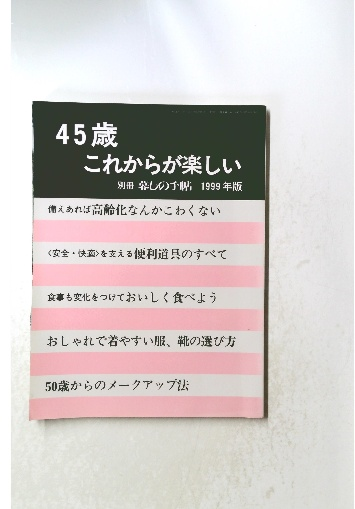 45歳
これからが楽しい
別冊 暮しの手帖 1999年版
備えあれば高齢化なんかこわくない
〈安全・快適〉を支える便利道具のすべて
食事も変化をつけておいしく食べよう
おしゃれで着やすい服、靴の選び方
50歳からのメークアップ法